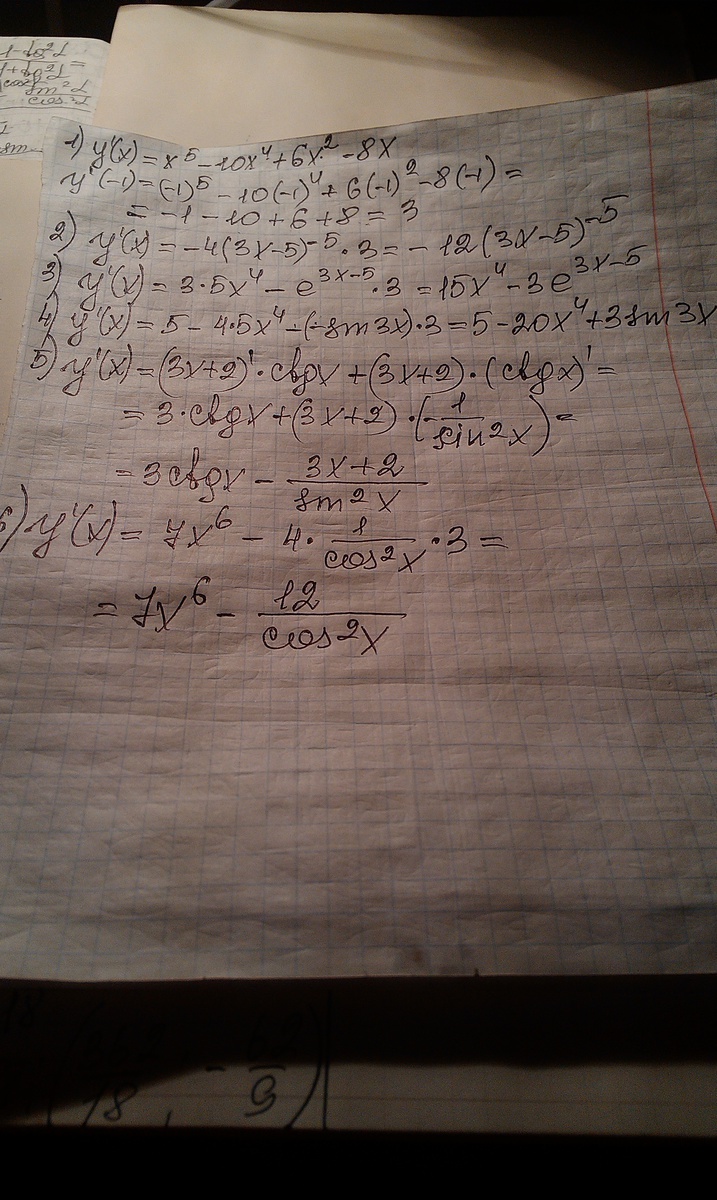 1-tg²α
1+tg²α =
cos² sin²α
cos²α
sin
1) y'(x) = x⁵ - 10x⁴ + 6x² - 8x
y'(-1) = (-1)⁵ - 10(-1)⁴ + 6(-1)² - 8(-1) =
= -1 - 10 + 6 + 8 = 3
2) y'(x) = -4(3x-5)⁻⁵ · 3 = -12(3x-5)⁻⁵
3) y'(x) = 3·5x⁴ - e³ˣ⁻⁵ · 3 = 15x⁴ - 3e³ˣ⁻⁵
4) y'(x) = 5 - 4·5x⁴ - (-sin3x)·3 = 5 - 20x⁴ + 3sin3x
5) y'(x) = (3x+2)'·ctgx + (3x+2)·(ctgx)' =
= 3·ctgx + (3x+2)·(-1/sin²x) =
= 3ctgx - (3x+2)/sin²x
6) y'(x) = 7x⁶ - 4·1/cos²x·3 =
= 7x⁶ - 12/cos²x
18